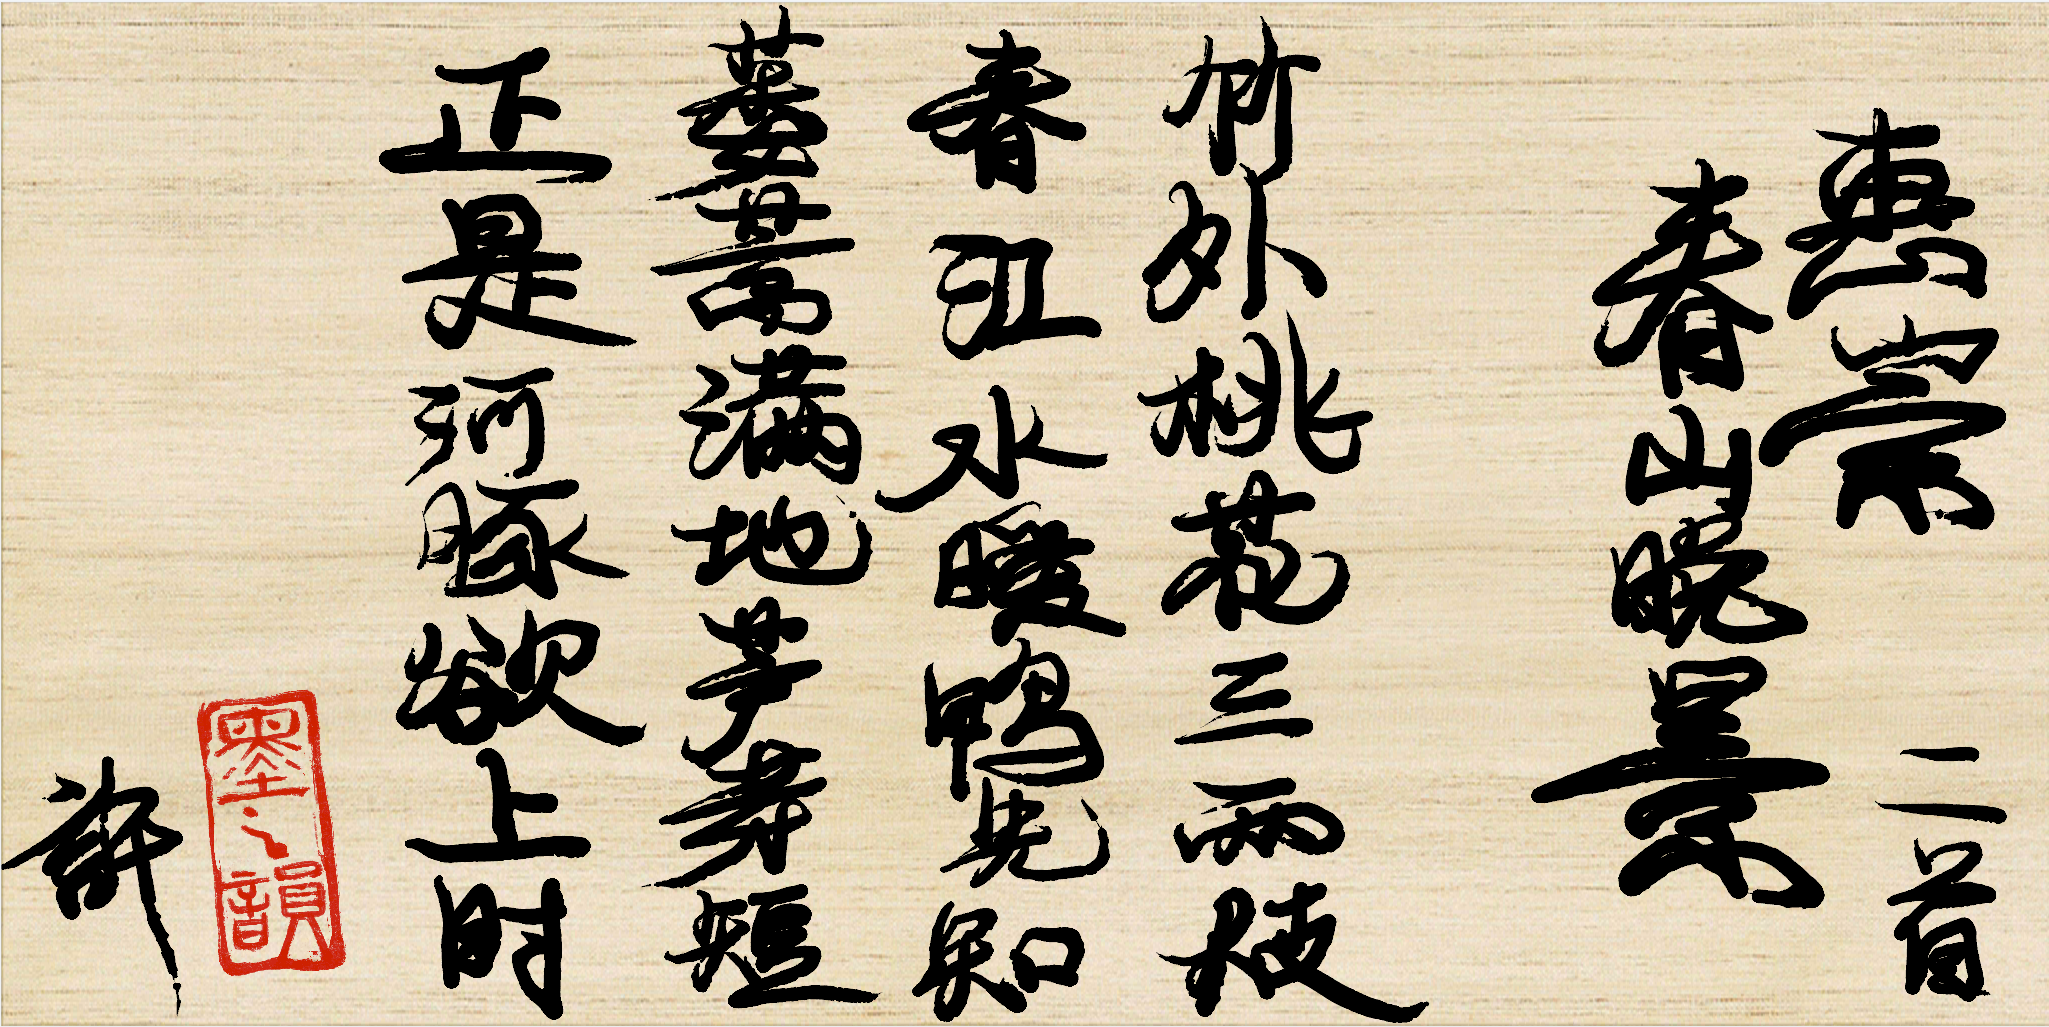 惠崇
春山晚景
二首
竹外桃花三两枝
春江水暖鸭先知
蔞蒿满地芦芽短
正是河豚欲上时
許
墨之韻